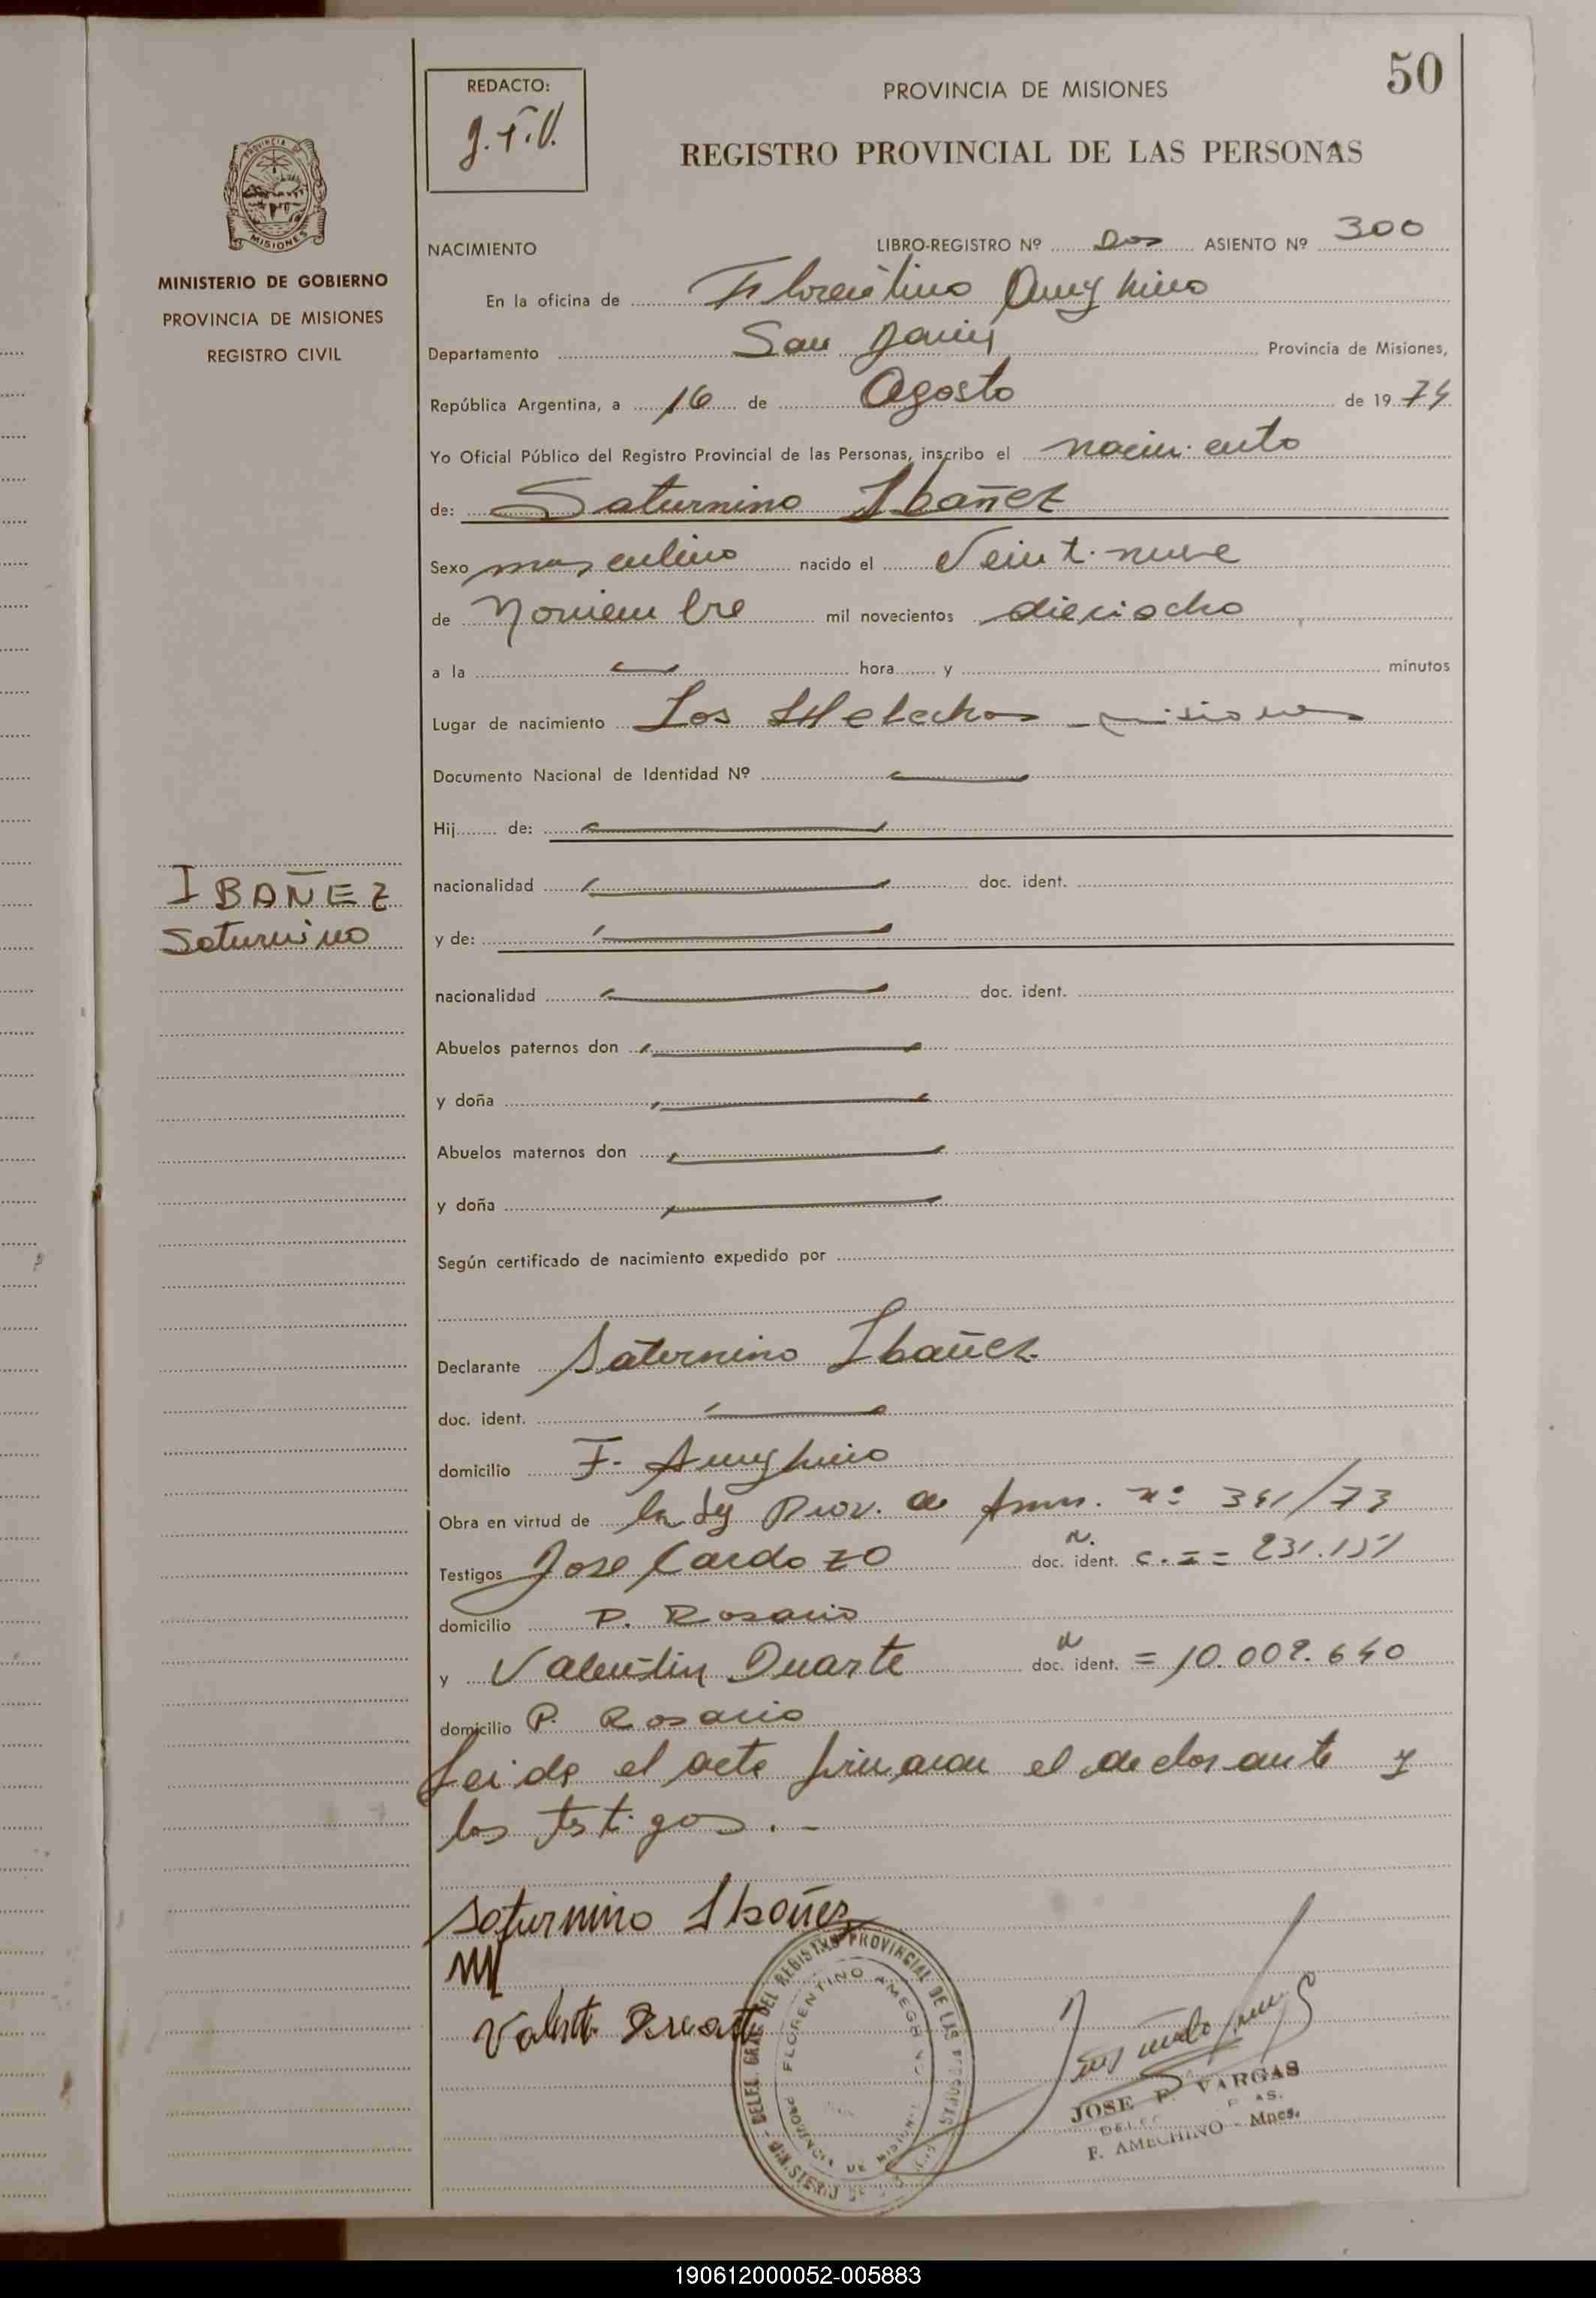 50
REDACTO:
J.F.V.
PROVINCIA DE MISIONES
REGISTRO PROVINCIAL DE LAS PERSONAS
PROVINCIA DE
MISIONES
MINISTERIO DE GOBIERNO
PROVINCIA DE MISIONES
REGISTRO CIVIL
NACIMIENTO LIBRO-REGISTRO Nº Dos ASIENTO Nº 300
En la oficina de Florentino Ameghino
Departamento San Javier Provincia de Misiones,
República Argentina, a 16 de Agosto de 1974
Yo Oficial Público del Registro Provincial de las Personas, inscribo el nacimiento
de: Saturnino Ibañez
Sexo masculino nacido el Veintinueve
de Noviembre mil novecientos dieciocho
a la — hora y minutos
Lugar de nacimiento Los Helechos - misiones
Documento Nacional de Identidad Nº —
Hij de: —
nacionalidad — doc. ident.
y de: —
nacionalidad — doc. ident.
IBAÑEZ
Saturnino
Abuelos paternos don —
y doña —
Abuelos maternos don —
y doña —
Según certificado de nacimiento expedido por
Declarante Saturnino Ibañez
doc. ident. —
domicilio F. Ameghino
Obra en virtud de la Ley Prov. de Amn. nº 341/73
Testigos Jose Cardozo doc. ident. C. I = 231.151
domicilio P. Rosario
y Valentin Duarte doc. ident. = 10.009.640
domicilio P. Rosario
Leida el acta firman el declarante y
los testigos.-
Saturnino Ibañez
DELEG. GRAL. DEL REGISTRO PROVINCIAL DE LAS PERSONAS
FLORENTINO AMEGHINO
PROVINCIA DE MISIONES
MINISTERIO DE
JOSE F. VARGAS
F. AMECHINO - Mnes.
190612000052-005883